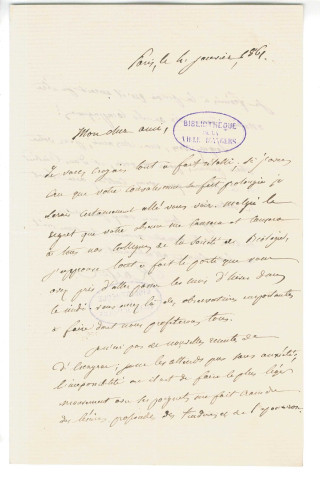 Paris, le 4 janvier 1861.
BIBLIOTHÈQUE
DE LA
VILLE D'ANGERS
Mon cher ami,
Je vous croyais tout à fait rétabli, si j'avais
cru que votre convalescence se fait prolongée je
serais certainement allé vous voir. Malgré le
regret que votre absence me causera et causera
à tous nos collègues de la Société de Biologie,
j'approuve tout à fait le parti que vous
avez pris d'aller passer les mois d'hiver dans
le midi. Vous avez là des observations importantes
à faire dont nous profiterons tous.
Je n'ai pas de nouvelles récentes de
je ne les attends pas sans anxiété;
l'impossibilité où il est de faire le plus léger
mouvement avec les poignets me fait craindre
des lésions profondes des tendons et de l'